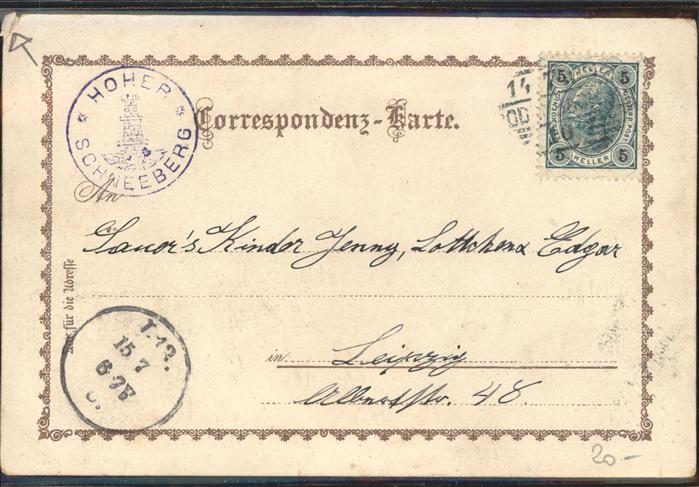 * HOHER *
SCHNEEBERG
Correspondenz-Karte.
5 HELLER 5
5 HELLER 5
14
An
Sauer's Kinder Jenny, Lottchen & Edgar
Nur für die Adresse
in Leipzig
48
T.12.
15 7
20-